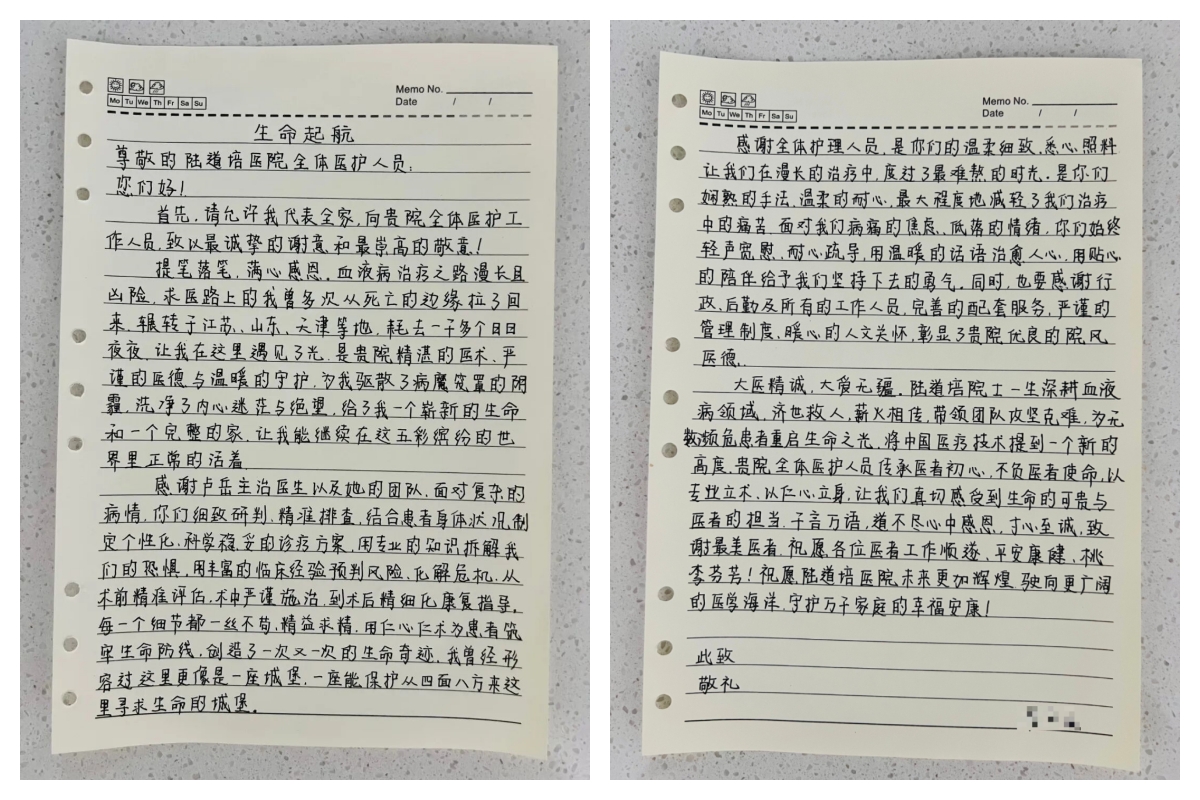 Memo No.
Mo Tu We Th Fr Sa Su
Date / /
生命起航
尊敬的陆道培医院全体医护人员:
您们好!
首先,请允许我代表全家,向贵院全体医护工
作人员,致以最诚挚的谢意和最崇高的敬意!
提笔落笔,满心感恩。血液病治疗之路漫长且
凶险,求医路上的我曾多次从死亡的边缘拉了回
来,辗转于江苏、山东、天津等地,耗去一千多个日日
夜夜,让我在这里遇见了光,是贵院精湛的医术、严
谨的医德与温暖的守护,为我驱散了病魔笼罩的阴
霾,洗净了内心迷茫与绝望,给了我一个崭新的生命
和一个完整的家,让我能继续在这五彩缤纷的世
界里正常的活着。
感谢卢岳主治医生以及她的团队,面对复杂的
病情,你们细致研判,精准排查,结合患者身体状况,制
定个性化、科学稳妥的诊疗方案,用专业的知识拆解我
们的恐惧,用丰富的临床经验预判风险、化解危机,从
术前精准评估,术中严谨施治,到术后精细化康复指导。
每一个细节都一丝不苟,精益求精,用仁心仁术为患者筑
牢生命防线,创造了一次又一次的生命奇迹,我曾经形
容过这里更像是一座城堡,一座能保护从四面八方来这
里寻求生命的城堡。
Memo No.
Mo Tu We Th Fr Sa Su
Date / /
感谢全体护理人员,是你们的温柔细致,悉心照料
让我们在漫长的治疗中,度过了最难熬的时光。是你们
娴熟的手法,温柔的耐心,最大程度地减轻了我们治疗
中的痛苦,面对我们病痛的焦虑、低落的情绪,你们始终
轻声宽慰,耐心疏导,用温暖的话语治愈人心,用贴心
的陪伴给予我们坚持下去的勇气。同时,也要感谢行
政、后勤及所有的工作人员,完善的配套服务,严谨的
管理制度,暖心的人文关怀,彰显了贵院优良的院风
医德。
大医精诚,大爱无疆。陆道培院士一生深耕血液
病领域,济世救人,薪火相传,带领团队攻坚克难,为无
数频危患者重启生命之光,将中国医疗技术提到一个新的
高度,贵院全体医护人员传承医者初心,不负医者使命,以
专业立术,以仁心立身,让我们真切感受到生命的可贵与
医者的担当,千言万语,道不尽心中感恩,寸心至诚,致
谢最美医者,祝愿各位医者工作顺遂、平安康健、桃
李芬芳!祝愿陆道培医院未来更加辉煌,驶向更广阔
的医学海洋,守护万千家庭的幸福安康!
此致
敬礼